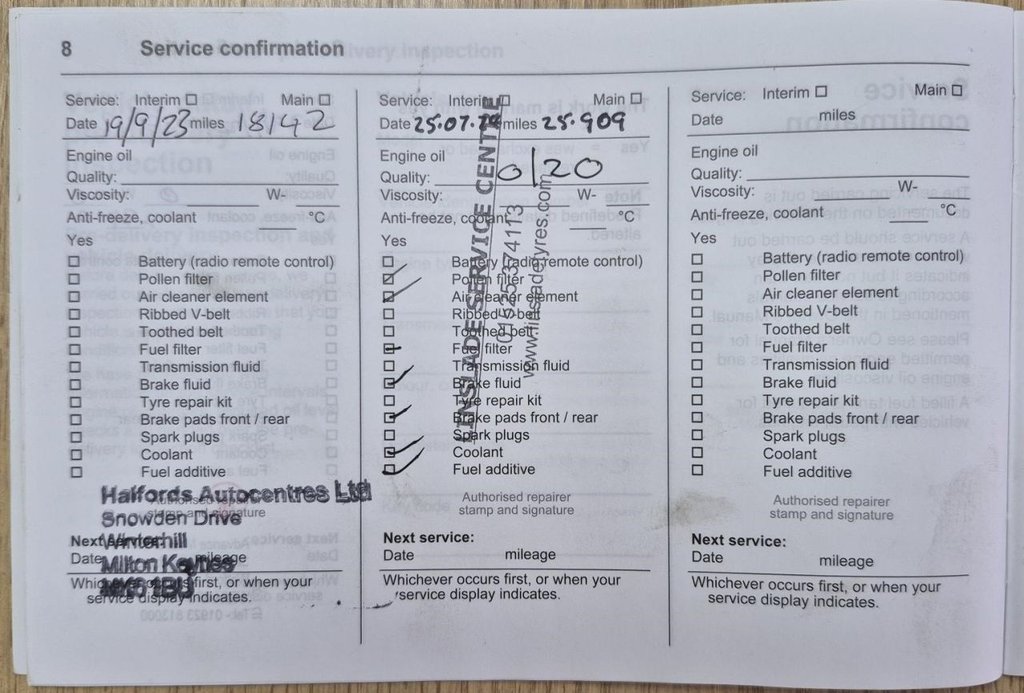 8 Service confirmation
Service: Interim Main
Date 19/9/23 miles 18142
Engine oil
Quality:
Viscosity: W-
Anti-freeze, coolant °C
Yes
Battery (radio remote control)
Pollen filter
Air cleaner element
Ribbed V-belt
Toothed belt
Fuel filter
Transmission fluid
Brake fluid
Tyre repair kit
Brake pads front / rear
Spark plugs
Coolant
Fuel additive
Halfords Autocentres Ltd
Authorised repairer
stamp and signature
Snowden Drive
Winterhill
Milton Keynes
MK6 1BU
Next service:
Date mileage
Whichever occurs first, or when your
service display indicates.
Service: Interim Main
Date 25.07.24 miles 25.909
Engine oil
Quality: 0/20
Viscosity: W-
Anti-freeze, coolant °C
Yes
Battery (radio remote control)
Pollen filter
Air cleaner element
Ribbed V-belt
Toothed belt
Fuel filter
Transmission fluid
Brake fluid
Tyre repair kit
Brake pads front / rear
Spark plugs
Coolant
Fuel additive
LINSLADE SERVICE CENTRE
01525 374113
www.linsladetyres.com
Authorised repairer
stamp and signature
Next service:
Date mileage
Whichever occurs first, or when your
service display indicates.
Service: Interim Main
Date miles
Engine oil
Quality:
Viscosity: W-
Anti-freeze, coolant °C
Yes
Battery (radio remote control)
Pollen filter
Air cleaner element
Ribbed V-belt
Toothed belt
Fuel filter
Transmission fluid
Brake fluid
Tyre repair kit
Brake pads front / rear
Spark plugs
Coolant
Fuel additive
Authorised repairer
stamp and signature
Next service:
Date mileage
Whichever occurs first, or when your
service display indicates.